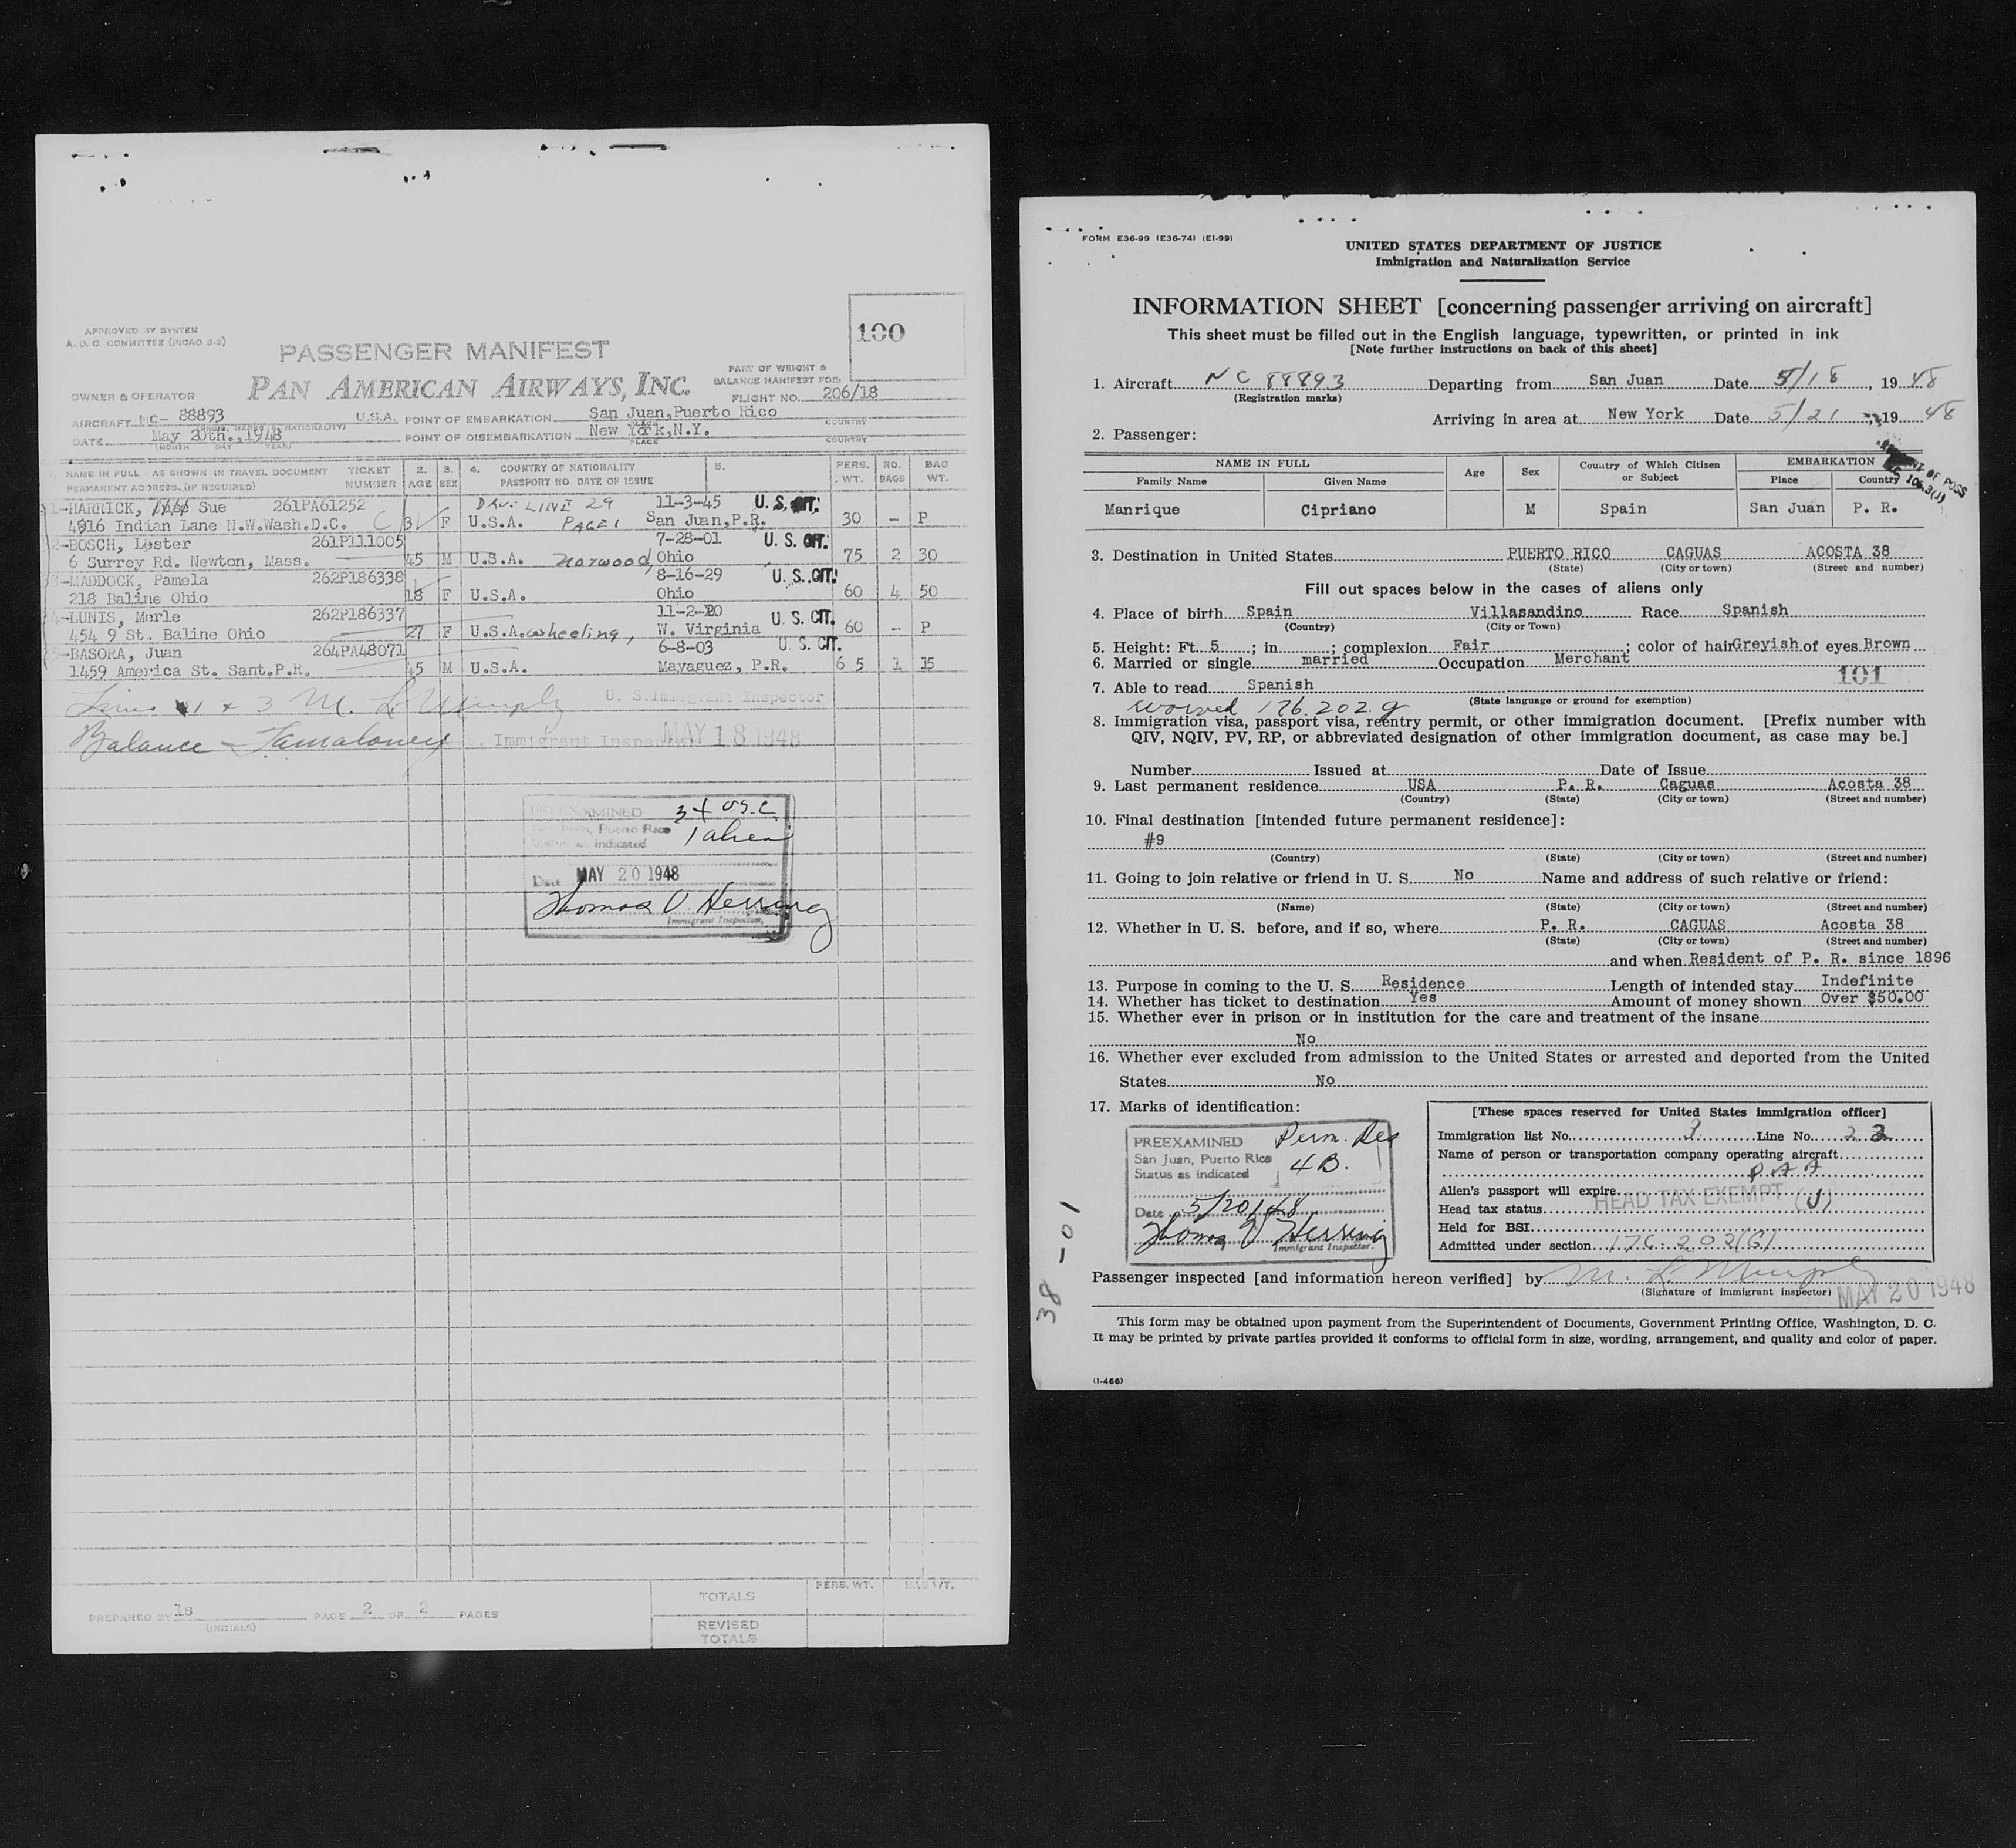 100
APPROVED BY SYSTEM
A. D. C. COMMITTEE (PICAO 3-2)
PASSENGER MANIFEST
PAN AMERICAN AIRWAYS, INC.
PART OF WEIGHT &
BALANCE MANIFEST FOR:
FLIGHT NO. 206/18
OWNER & OPERATOR
AIRCRAFT NC- 88893 U.S.A. POINT OF EMBARKATION San Juan,Puerto Rico
PLACE COUNTRY
DATE May 20th.,1948 POINT OF DISEMBARKATION New York,N.Y.
(MONTH DAY YEAR) PLACE COUNTRY
NAME IN FULL - AS SHOWN IN TRAVEL DOCUMENT TICKET 2. 3. 4. COUNTRY OF NATIONALITY 5. PERS. NO. BAG
PERMANENT ADDRESS. (IF REQUIRED) NUMBER AGE SEX PASSPORT NO. DATE OF ISSUE WT. BAGS WT.
1-HARRICK, Sue 261PA61252 LINE 29 11-3-45 U.S. CIT.
4916 Indian Lane N.W.Wash.D.C. C F U.S.A. PAGE 1 San Juan,P.R. 30 - P
2-BOSCH, Lester 261P111005 7-28-01 U. S. CIT.
6 Surrey Rd. Newton, Mass. 45 M U.S.A. Norwood, Ohio 75 2 30
3-MADDOCK, Pamela 262P186338 8-16-29 U. S. CIT.
218 Baline Ohio 18 F U.S.A. Ohio 60 4 50
4-LUNIS, Merle 262P186337 11-2-20 U. S. CIT.
454 9 St. Baline Ohio 27 F U.S.A. Wheeling, W. Virginia 60 - P
5-BASORA, Juan 264PA48071 6-8-03 U. S. CIT.
1459 America St. Sant.P.R. 45 M U.S.A. Mayaguez, P.R. 6 5 1 15
Lines 1 & 3 M. L. Murphy U. S. Immigrant Inspector
Balance - Immigrant Inspector MAY 18 1948
PREEXAMINED 34 U.S.C.
San Juan, Puerto Rico 1 alien
Status as indicated
Date MAY 20 1948
Thomas V Herring
Immigrant Inspector.
PREPARED BY ls PAGE 2 OF 2 PAGES
(INITIALS)
TOTALS PERS. WT. BAG WT.
REVISED
TOTALS
FORM E36-99 (E36-74) (EI-99)
UNITED STATES DEPARTMENT OF JUSTICE
Immigration and Naturalization Service
INFORMATION SHEET [concerning passenger arriving on aircraft]
This sheet must be filled out in the English language, typewritten, or printed in ink
[Note further instructions on back of this sheet]
1. Aircraft NC 88893 Departing from San Juan Date 5/18, 1948
(Registration marks)
Arriving in area at New York Date 5/21, 1948
2. Passenger:
NAME IN FULL Age Sex Country of Which Citizen or Subject EMBARKATION
Family Name Given Name Place Country
Manrique Cipriano M Spain San Juan P. R.
3. Destination in United States PUERTO RICO CAGUAS ACOSTA 38
(State) (City or town) (Street and number)
Fill out spaces below in the cases of aliens only
4. Place of birth Spain Villasandino Race Spanish
(Country) (City or Town)
5. Height: Ft. 5 ; in ; complexion Fair ; color of hair Greyish of eyes Brown
6. Married or single married Occupation Merchant
101
7. Able to read Spanish
(State language or ground for exemption)
Waived 176.202 g
8. Immigration visa, passport visa, reentry permit, or other immigration document. [Prefix number with
QIV, NQIV, PV, RP, or abbreviated designation of other immigration document, as case may be.]
Number Issued at Date of Issue
9. Last permanent residence USA P. R. Caguas Acosta 38
(Country) (State) (City or town) (Street and number)
10. Final destination [intended future permanent residence]:
#9
(Country) (State) (City or town) (Street and number)
11. Going to join relative or friend in U. S. No Name and address of such relative or friend:
(Name) (State) (City or town) (Street and number)
12. Whether in U. S. before, and if so, where P. R. CAGUAS Acosta 38
(State) (City or town) (Street and number)
and when Resident of P. R. since 1896
13. Purpose in coming to the U. S. Residence Length of intended stay Indefinite
14. Whether has ticket to destination Yes Amount of money shown Over $50.00
15. Whether ever in prison or in institution for the care and treatment of the insane
No
16. Whether ever excluded from admission to the United States or arrested and deported from the United
States No
17. Marks of identification:
PREEXAMINED Perm. Res
San Juan, Puerto Rico 4B.
Status as indicated
Date 5/20/48
Thomas V Herring
Immigrant Inspector.
[These spaces reserved for United States immigration officer]
Immigration list No. Line No. 22
Name of person or transportation company operating aircraft
P.A.A
Alien's passport will expire
Head tax status HEAD TAX EXEMPT (J)
Held for BSI
Admitted under section 176.202(G)
Passenger inspected [and information hereon verified] by M. L. Murphy
(Signature of immigrant inspector) MAY 20 1948
38 -01
This form may be obtained upon payment from the Superintendent of Documents, Government Printing Office, Washington, D. C.
It may be printed by private parties provided it conforms to official form in size, wording, arrangement, and quality and color of paper.
(I-466)